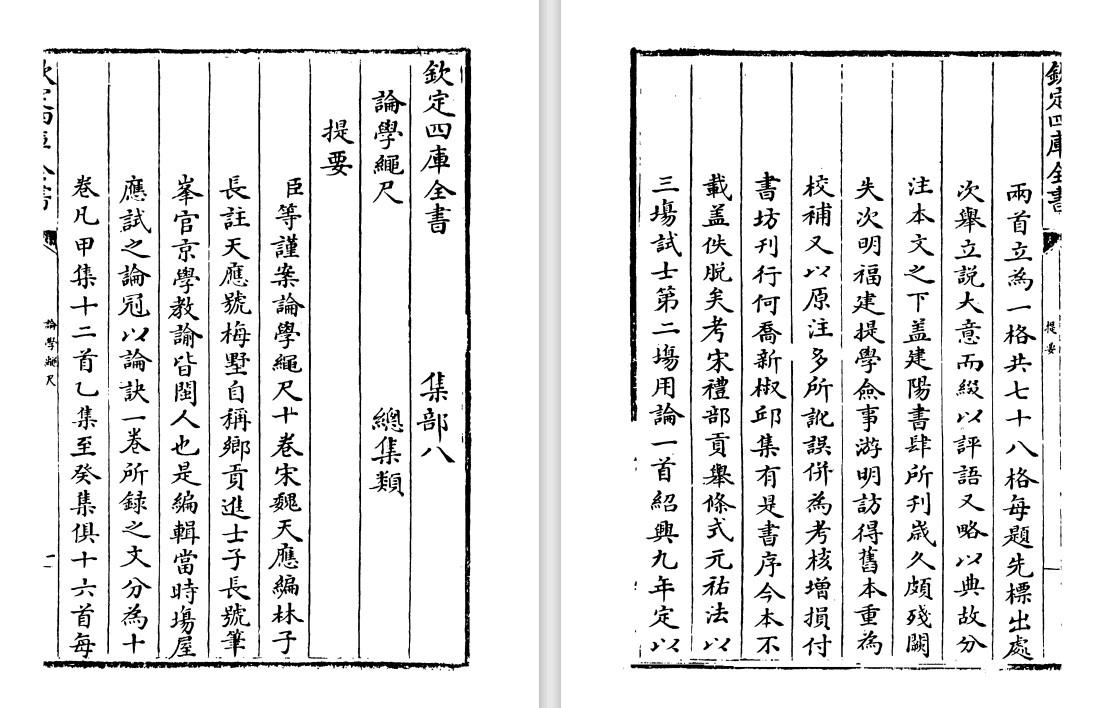 欽定四庫全書 集部八
論學繩尺 總集類
提要
臣等謹案論學繩尺十卷宋魏天應編林子
長註天應號梅墅自稱鄉貢進士子長號筆
峯官京學教諭皆閩人也是編輯當時塲屋
應試之論冠以論訣一卷所録之文分為十
卷凡甲集十二首乙集至癸集俱十六首每
欽定四庫全書 論學繩尺
欽定四庫全書 提要
兩首立為一格共七十八格每題先標出處
次舉立説大意而綴以評語又略以典故分
注本文之下盖建陽書肆所刊歲久頗殘闕
失次明福建提學僉事游明訪得舊本重為
校補又以原注多所訛誤併為考核增損付
書坊刊行何喬新椒邱集有是書序今本不
載盖佚脱矣考宋禮部貢舉條式元祐法以
三塲試士第二塲用論一首紹興九年定以